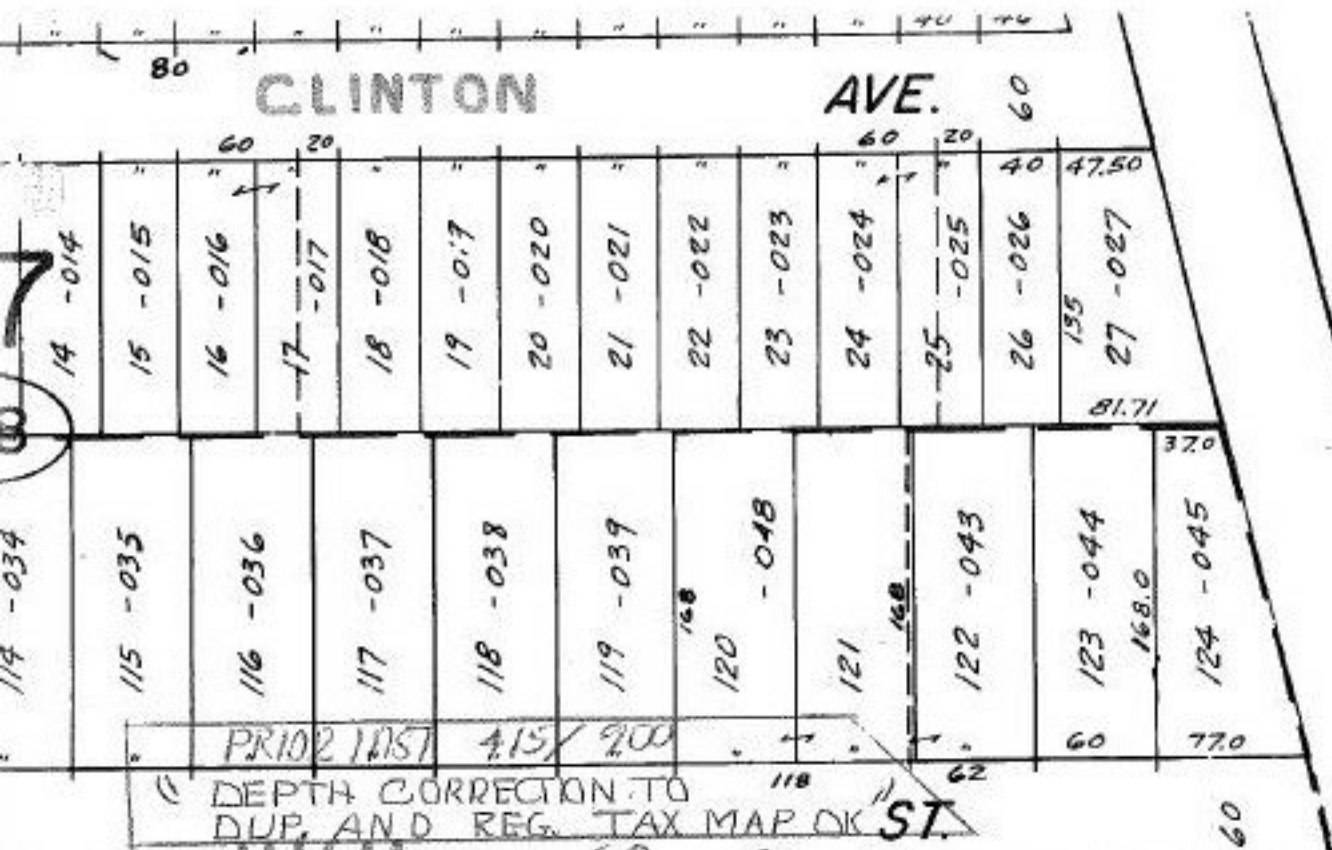 " " " " " " " " " " 40 46
80
CLINTON AVE. 60
60 20 60 20
" " " " " " " " " " 40 47.50
7
14 -014
15 -015
16 -016
17 -017
18 -018
19 -019
20 -020
21 -021
22 -022
23 -023
24 -024
25 -025
26 -026
135
27 -027
81.71
8
37.0
114 -034
115 -035
116 -036
117 -037
118 -038
119 -039
168
120 -048
121
168
122 -043
123 -044
168.0
124 -045
" " " " " 60 77.0
PRIOR INST 415/900
118 62
" DEPTH CORRECTION TO "
DUP. AND REG. TAX MAP OK ST.
60